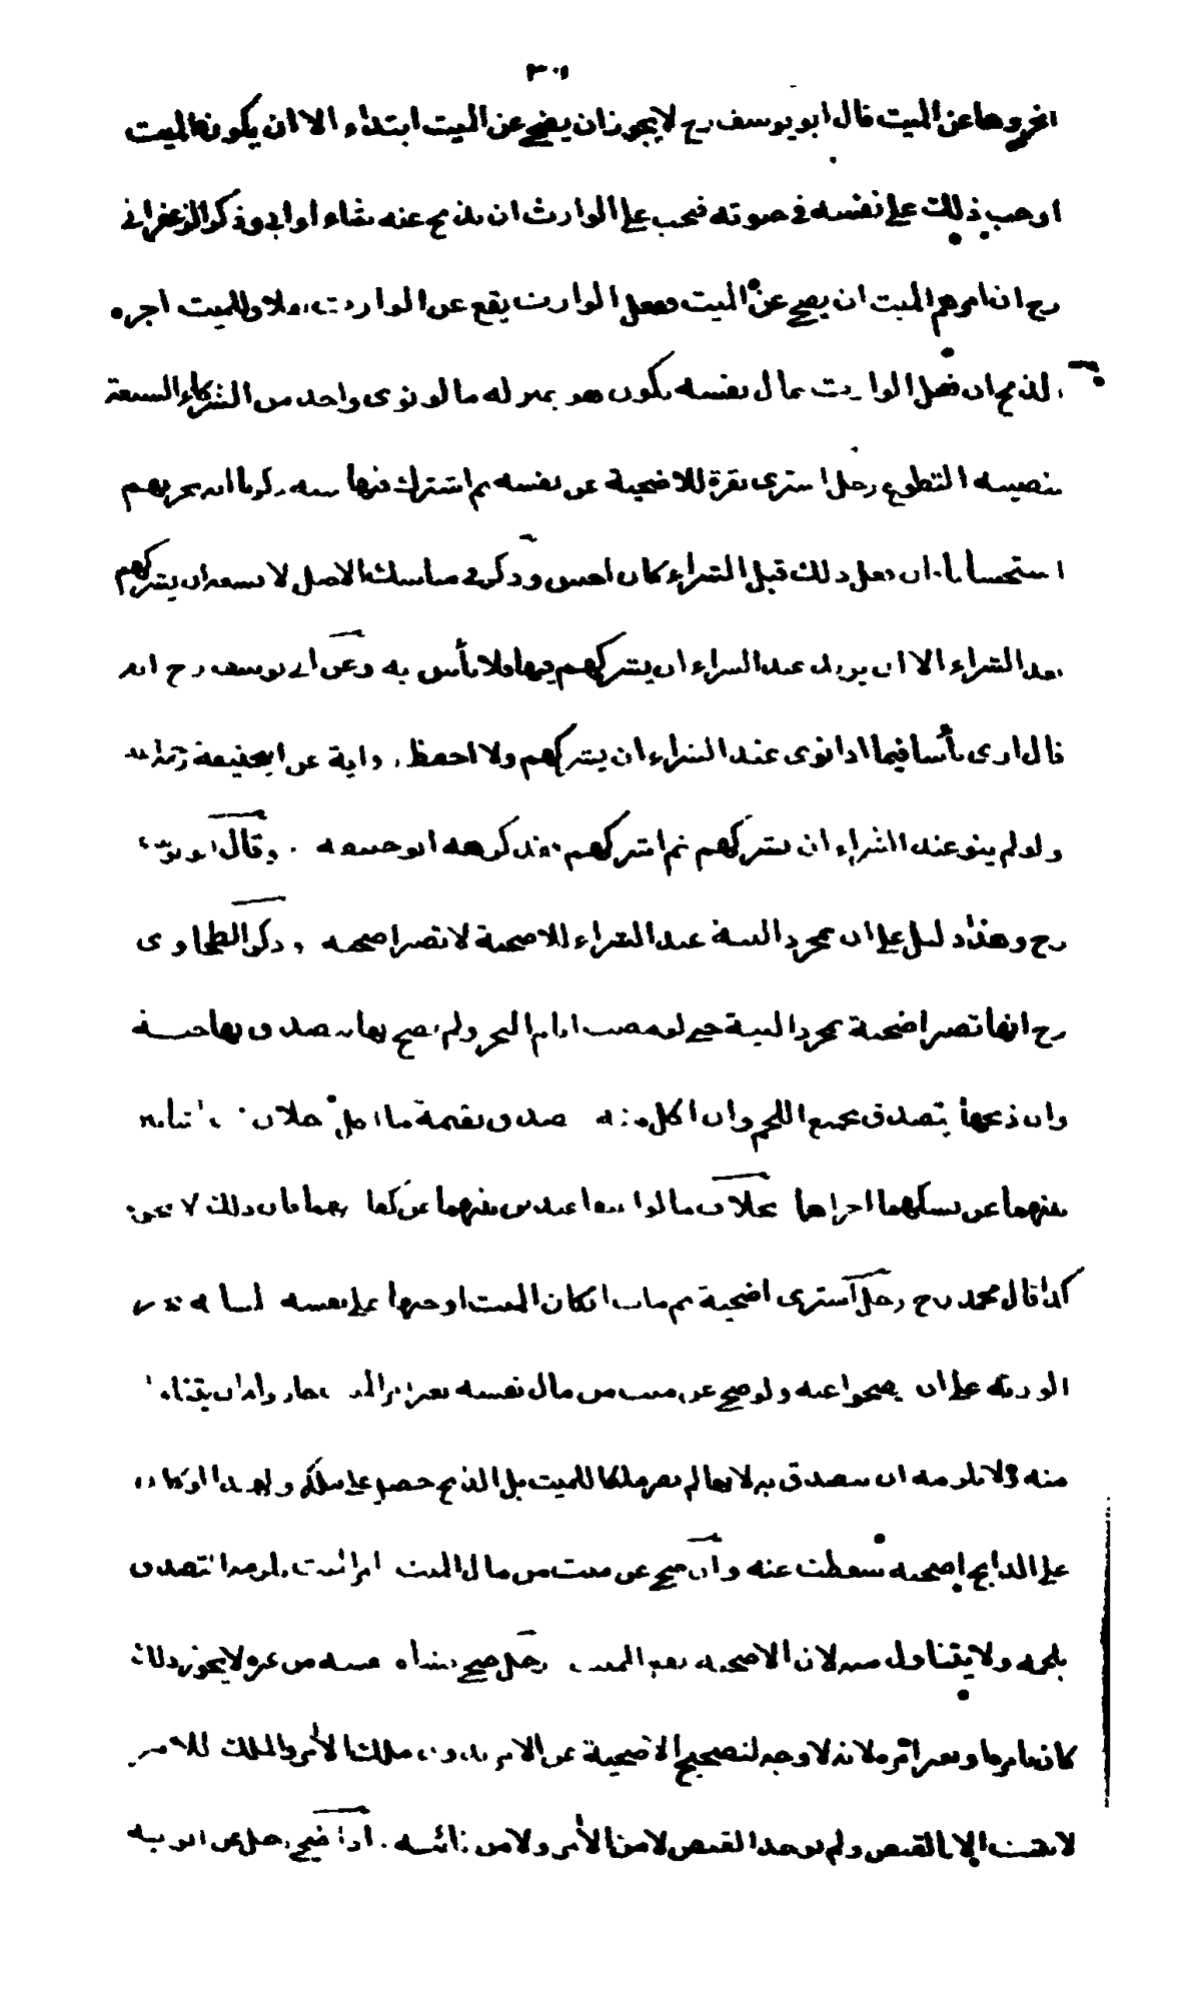 ٣٠١
انحروها عن الميت قال ابو يوسف رح لا يجوز ان يضحي عن الميت ابتداء الا ان يكون الميت
اوجب ذلك على نفسه في حيوته فيجب على الوارث ان يذبح عنه شاء او ابى وذكر الزعفراني
رح ان امرهم الميت ان يضحي عن الميت ففعل الوارث يقع عن الوارث وللميت اجره
الذبح ان فعل الوارث بمال نفسه يكون هو بمنزلة ما لو نوى واحد من الشركاء السبعة
بنصيبه التطوع رجل اشترى بقرة للاضحية عن نفسه ثم اشترك فيها ستة يجزيهم
استحسانا فان فعل ذلك قبل الشراء كان احسن وذكر في مناسك الاصل لا يسعه ان يشركهم
بعد الشراء الا ان يريد عند الشراء ان يشركهم فيها فلا بأس به وعن ابي يوسف رح انه
قال ارى بأسا فيما اذا نوى عند الشراء ان يشركهم ولا احفظ رواية عن ابي حنيفة رحمه الله
ولو لم ينو عند الشراء ان يشركهم ثم اشركهم فقد كرهه ابو حنيفة وقال ابو يوسف
رح وهذا دليل على ان بمجرد النية عند الشراء للاضحية لا تصير اضحية وذكر الطحاوي
رح انها تصير اضحية بمجرد النية حتى لو مضت ايام النحر ولم يضح بها يتصدق بها حية
وان ذبحها يتصدق بجميع اللحم وان اكل منه تصدق بقيمة ما اكل رجلان
عن نسكهما اجزاهما بخلاف ما لو اعتقا عبدين بينهما عن كفارتهما فان ذلك لا يجوز
كذا قال محمد رح رجل اشترى اضحية ثم مات ان كان الميت اوجبها على نفسه
الورثة على ان يضحوا عنه ولو ضحى عن ميت من مال نفسه بغير امر الميت جاز وله ان يتناول
منه ولا يلزمه ان يتصدق به لانها لم تصر ملكا للميت بل الذبح حصل على ملكه ولهذا لو كان
على الذابح اضحية سقطت عنه وان ضحى عن ميت من مال الميت بامر الميت يلزمه التصدق
بلحمه ولا يتناول منه لان الاضحية تقع للميت رجل ضحى بشاة نفسه عن غيره لا يجوز ذلك
كان بامره او بغير امره لانه لا وجه لتصحيح الاضحية عن الآمر بدون ملك الآمر والملك للآمر
لا يثبت الا بالقبض ولم يوجد القبض لا من الآمر ولا من نائبه اذا ضحى رجل عن ابويه